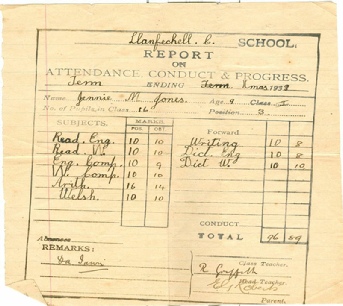 Llanfechell C. SCHOOL.
REPORT
ON
ATTENDANCE CONDUCT & PROGRESS.
Term ENDING Term Xmas 1938
Name Jennie M. Jones. Age 9 Class I
No. of Pupils in Class 16 Position 3
SUBJECTS. MARKS
POS. OBT.
Read. Eng. 10 10
Read. W. 10 10
Eng. Comp. 10 9
W. Comp. 10 10
Arith. 16 14
Welsh. 10 10
Forward
Writing 10 8
Dict. Eng 10 8
Dict W. 10 10
CONDUCT
TOTAL 96 89
Absences
REMARKS:
Da Iawn
Class Teacher.
R Griffith
Head Teacher.
Parent.